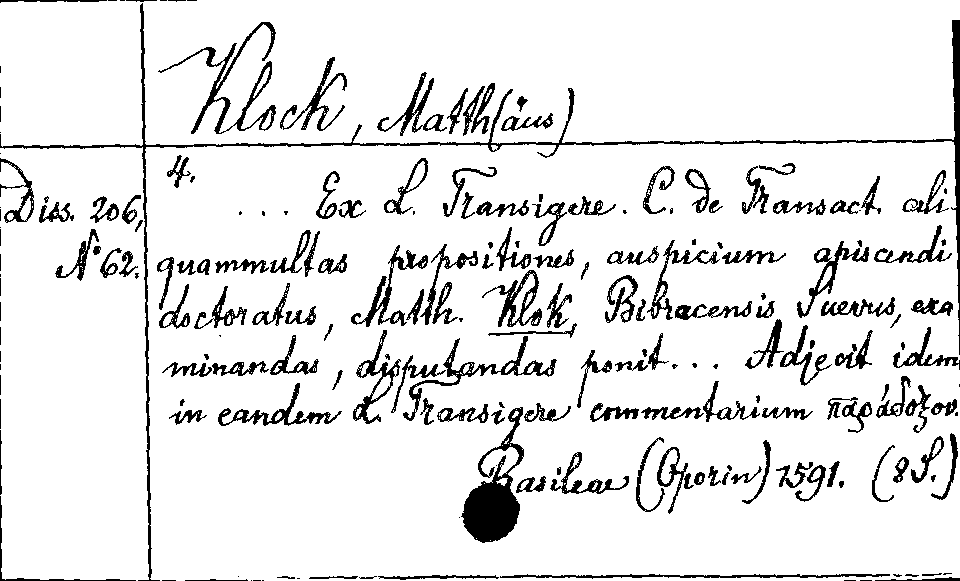 Klock, Matth(äus)
4.
Diss. 206,
N° 62.
... Ex L. Transigere. C. de Transact. ali-
quammultas propositiones, auspicium apiscendi
doctoratus, Matth. Klok, Bibracensis Suevus, exa
minandas, disputandas ponit... Adjecit idem
in eandem L. Transigere commentarium παράδοξον.
Basileae (Oporin) 1591. (8 S.)